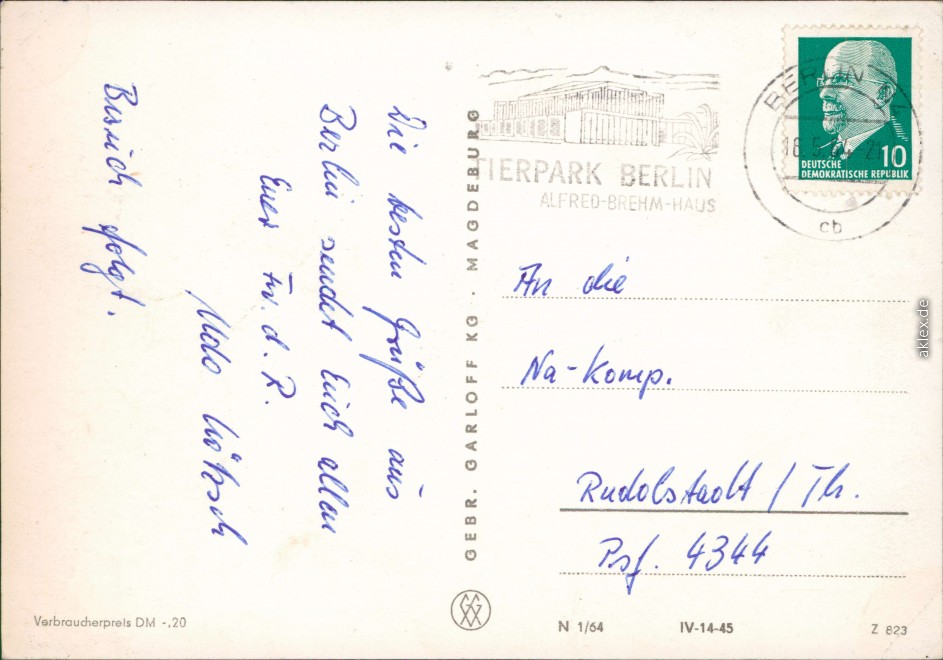 Die besten Grüße aus
Berlin sendet Euch allen
Euer Fw. d. R.
Udo
Besuch folgt.
GEBR. GARLOFF KG · MAGDEBURG
TIERPARK BERLIN
ALFRED-BREHM-HAUS
BERLIN
18.5.
cb
10
DEUTSCHE
DEMOKRATISCHE REPUBLIK
An die
Na-Komp.
Rudolstadt / Th.
Psf. 4344
Verbraucherpreis DM -,20
N 1/64
IV-14-45
Z 823
aklex.de